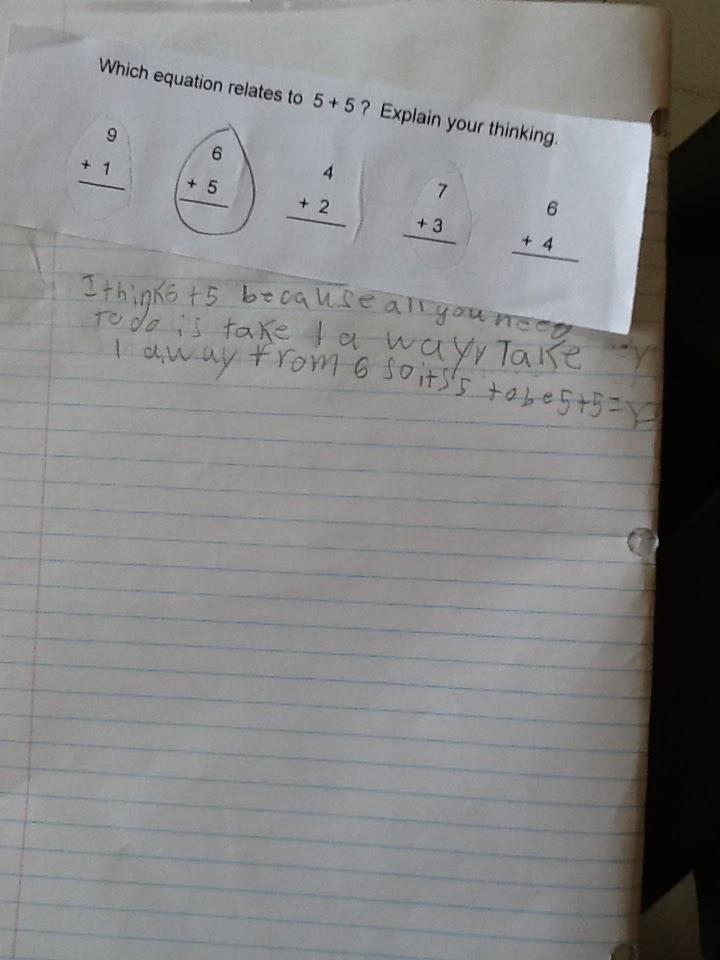 Which equation relates to 5 + 5 ? Explain your thinking.
9 6 4 7 6
+ 1 + 5 + 2 + 3 + 4
I think 6 +5 because all you need
to do is take 1 a way, Take
1 away from 6 so it's 5 to be 5+5=